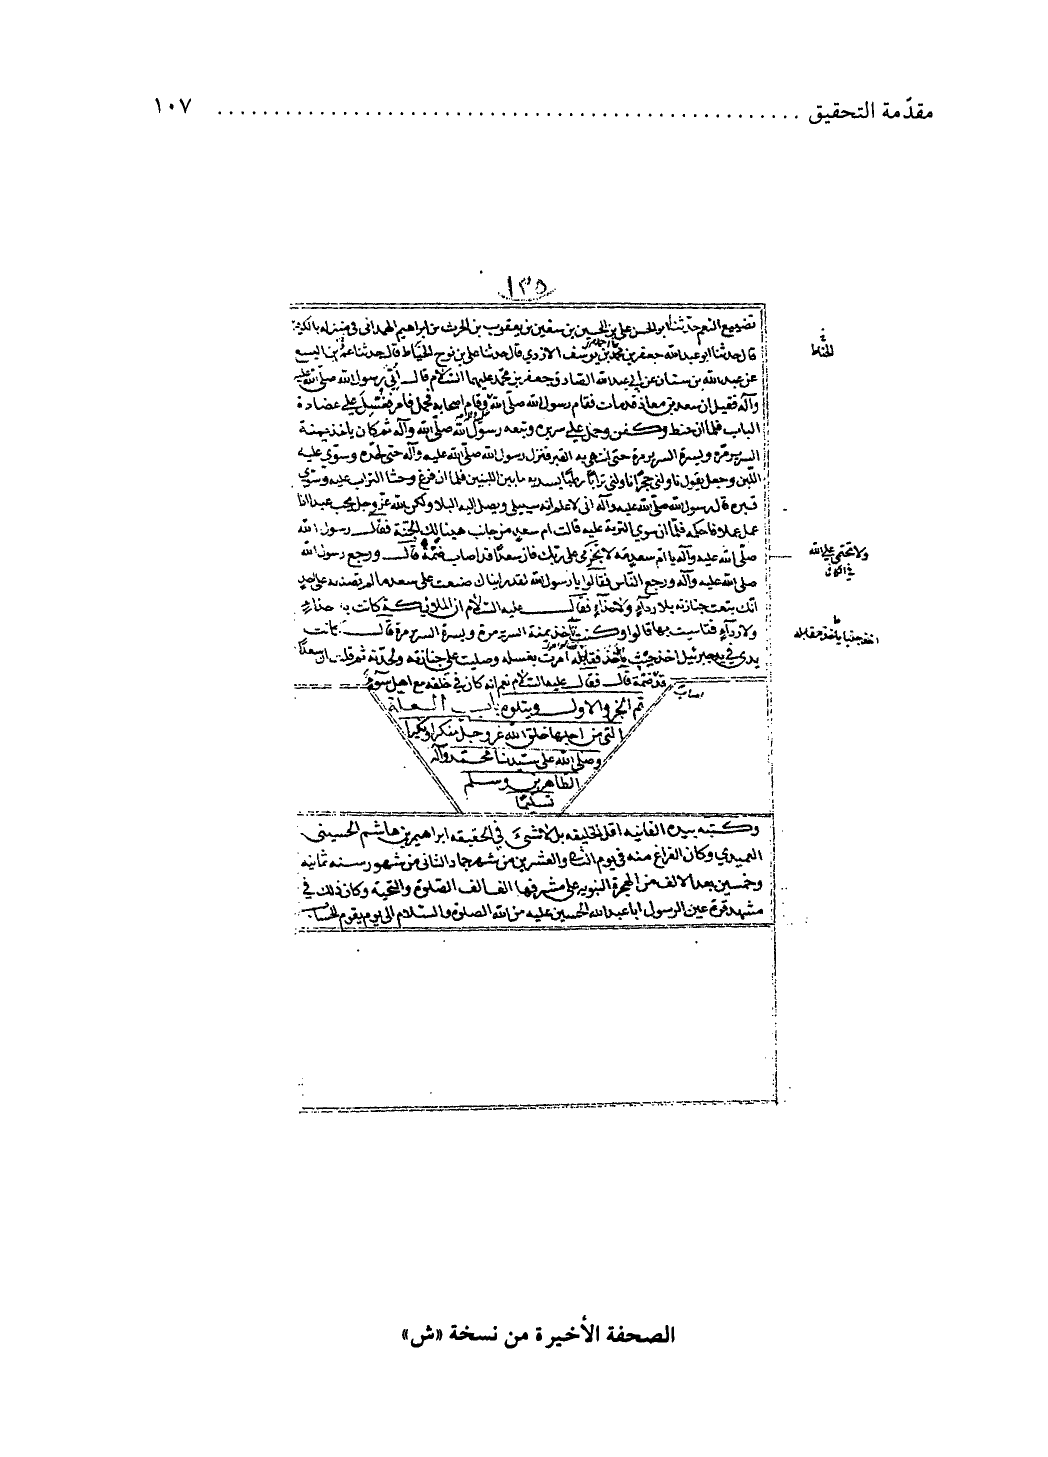 مقدّمة التحقيق ................................................ ١٠٧
١٣٥
حدثنا أبو الحسن علي بن الحسين بن سفين بن يعقوب بن الحرث بن ابراهيم الهمداني في منزله بالكوفة
قال حدثنا ابو عبدالله جعفر بن محمد بن يوسف الازدي قال حدثنا علي بن نوح الحناط قال حدثنا عمرو بن اليسع
عن عبدالله بن سنان عن ابي عبدالله الصادق جعفر بن محمد عليهما السلام قال أتي رسول الله صلى الله عليه
وآله فقيل ان سعد بن معاذ قد مات فقام رسول الله صلى الله وقام اصحابه فحمل فامر فغسل على عضادة
الباب فلما ان حنط وكفن وحمل على سريره وتبعه رسول الله صلى الله وآله ثم كان ياخذ يمنة
السرير مرة ويسرة السرير مرة حتى انتهى به القبر فنزل رسول الله صلى الله عليه وآله حتى لحده وسوى عليه
اللبن وجعل يقول ناولني حجرا ناولني ترابا رطبا يسد به ما بين اللبنين فلما ان فرغ وحثا التراب عليه وسوى
قبره قال رسول الله صلى الله عليه وآله اني لاعلم انه سيبلى ويصل اليه البلا ولكن الله عز وجل يحب عبدا اذا
عمل عملا فاحكمه فلما ان سوى التربة عليه قالت ام سعد من جانب هنيئا لك الجنة فقال رسول الله
صلى الله عليه وآله يا ام سعد مه لا تجزمي على ربك فان سعدا قد اصابته ضمة قال ورجع رسول الله
صلى الله عليه وآله ورجع الناس فقالوا يا رسول الله لقد رايناك صنعت على سعد ما لم تصنعه على احد
انك تبعت جنازته بلا رداء ولا حذاء فقال عليه السلام ان الملائكة كانت بلا حذاء
ولا رداء فتاسيت بها قالوا وكنت تأخذ يمنة السرير مرة ويسرة السرير مرة قال كانت
يدي في يد جبرئيل اخذ حيث ياخذ فقالوا أمرت بغسله وصليت على جنازته ولحدته ثم قلت ان سعدا
قد ضمة قال فقال عليه السلام نعم انه كان في خلقه مع اهله سوء
تم الجزو الاول ويتلوه باب العلة
التي من اجلها خلق الله عز وجل منكرا ونكيرا
وصلى الله على سيدنا محمد وآله
الطاهرين وسلم
تسليما
وكتبه بيده الفانيه اقل الخليقه بل لا شئ في الحقيقه ابراهيم بن هاشم الحسيني
وكان الفراغ منه في يوم والعشرين من شهر جماد الثاني من شهور سنه ثمانيه
وخمسين بعد الالف من الهجرة النبويه على مشرفها الف الف الصلوة والتحية وكان ذلك في
مشهد قرة عين الرسول ابا عبدالله الحسين عليه من الله الصلوة والسلام الى يوم يقوم الحساب
الصحفة الأخيرة من نسخة «ش»